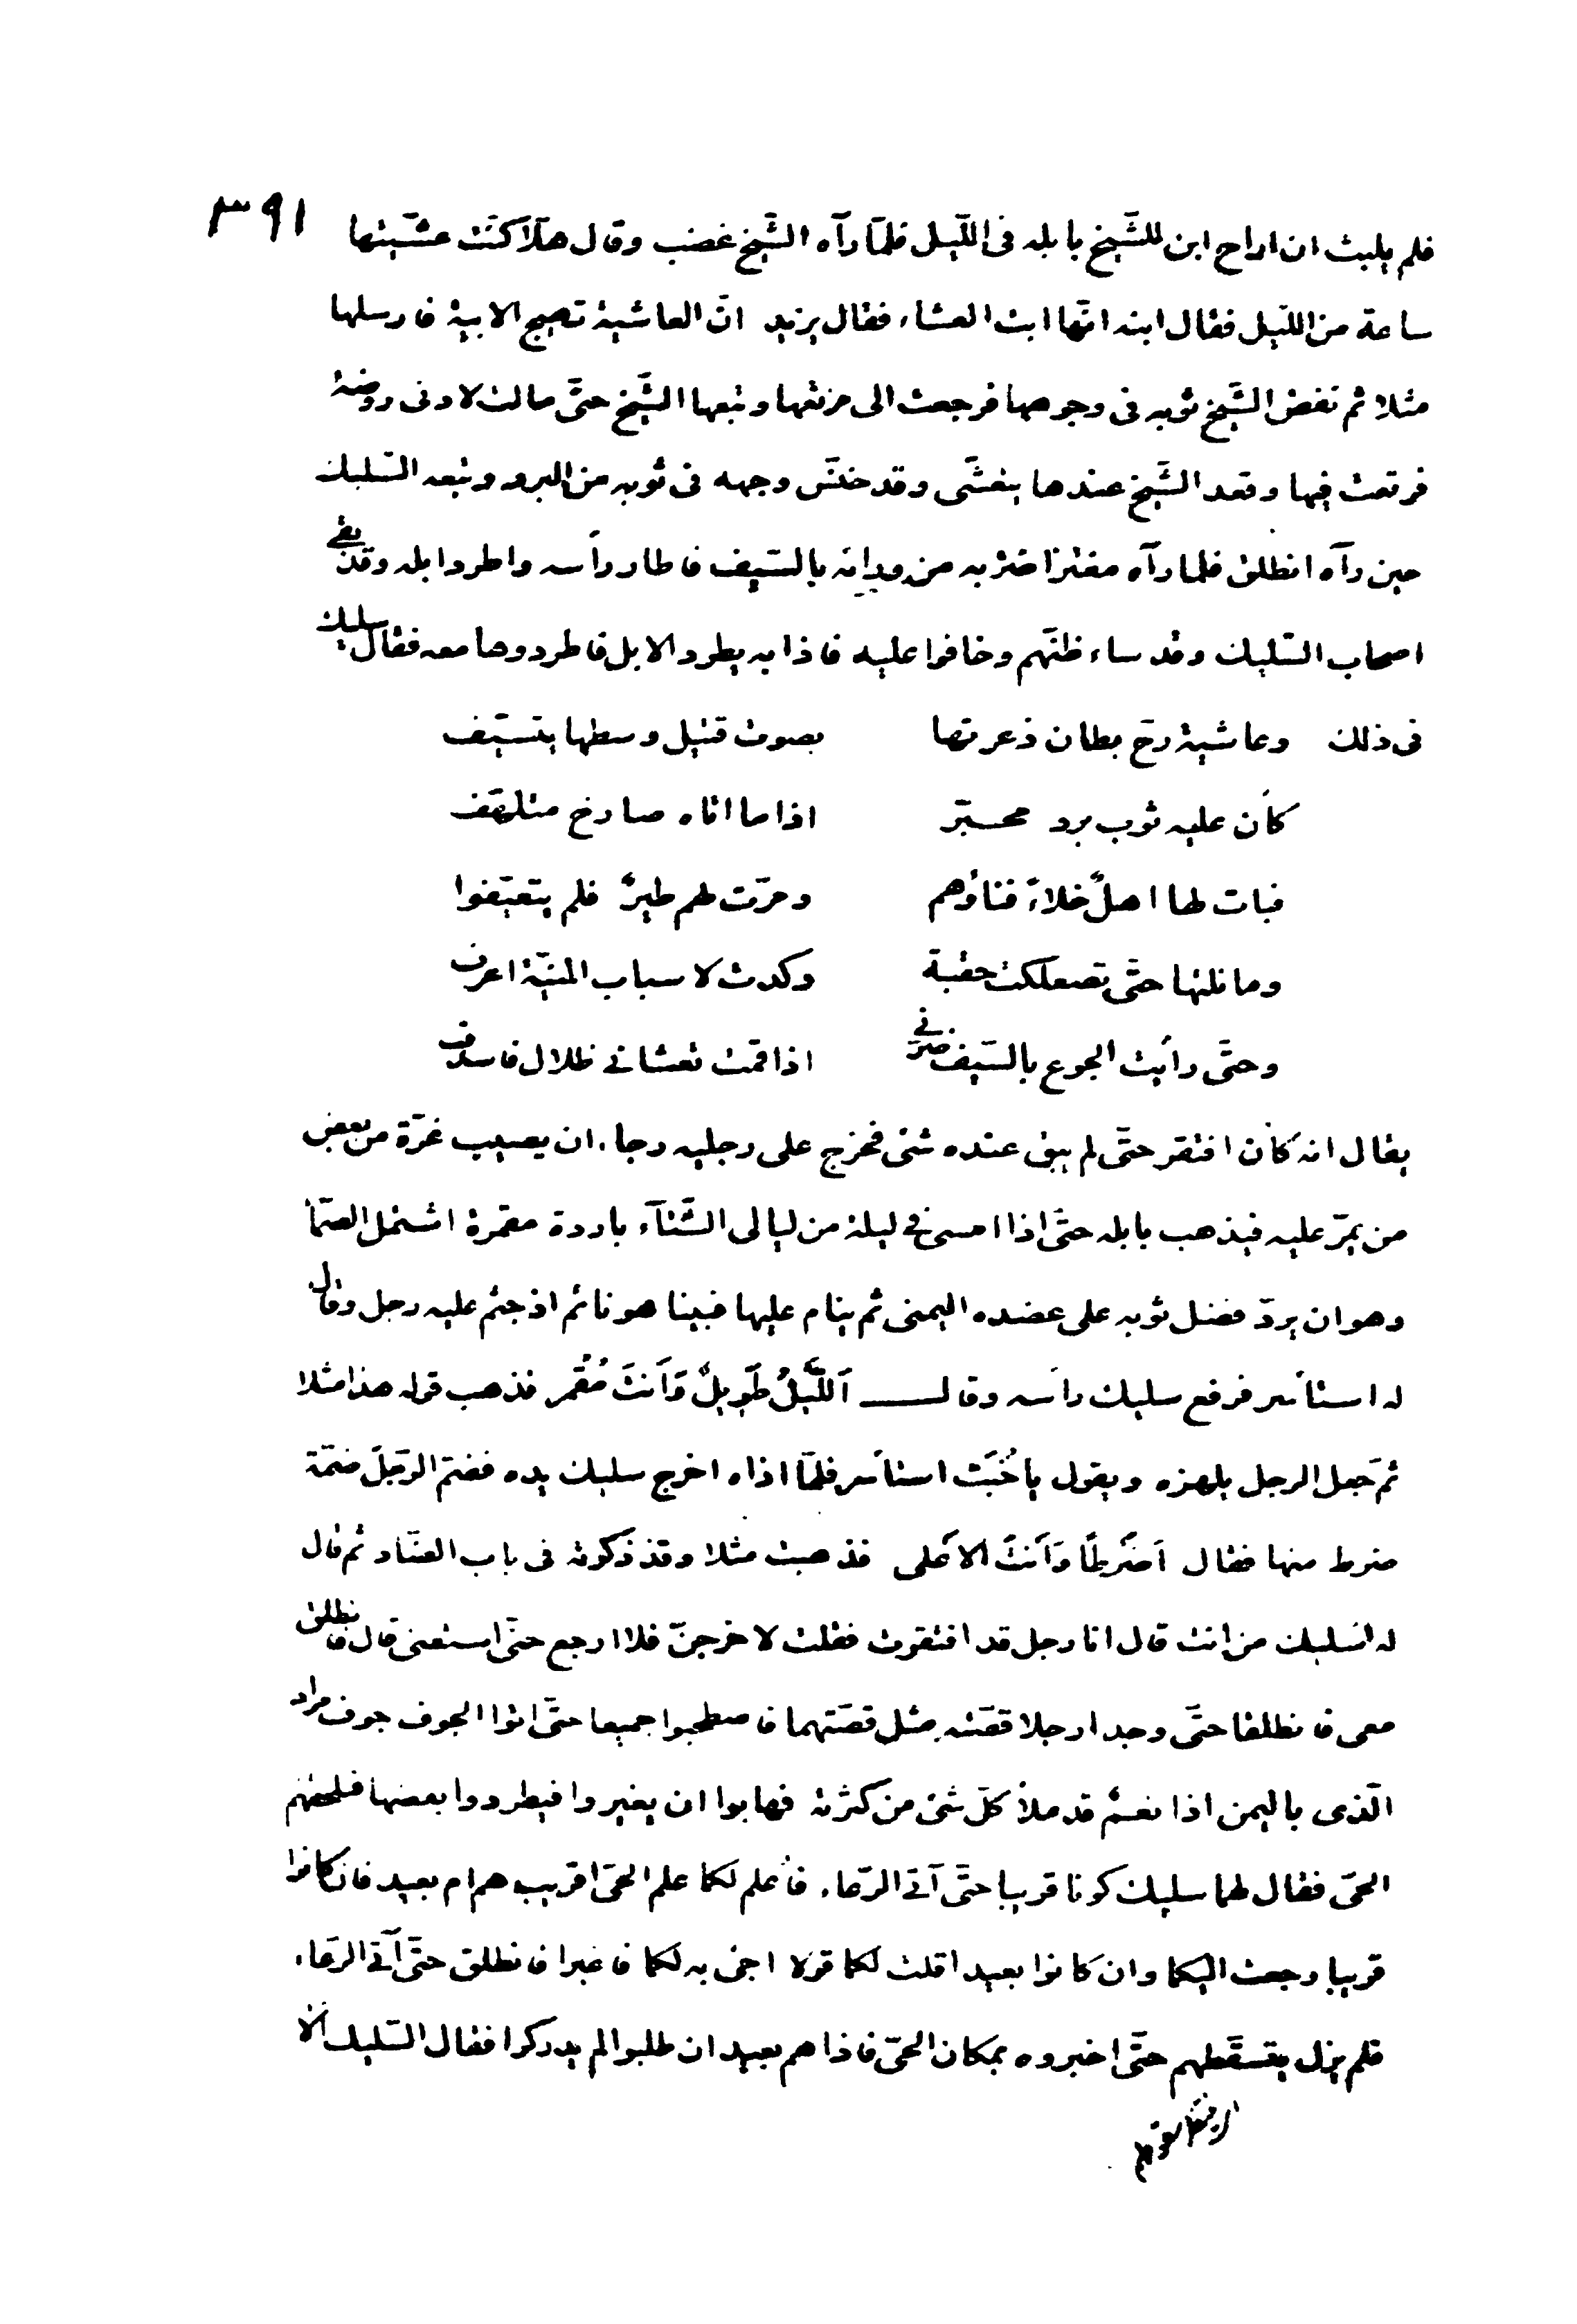 ٣٩١
فلم يلبث ان اراح ابن للشَّيخ بابله فى اللّيل فلمّا رآه الشَّيخ غضب وقال هلّا كنت عشّيتها
ساعة من اللّيل فقال ابنه انّها ابت العشاء فقال يزيد انّ العاشية تهيج الابية فارسلها
مثلا ثم نفض الشَّيخ ثوبه فى وجوهها فرجعت الى مرتعها وتبعها الشَّيخ حتّى مالت لادنى روضة
فرتعت فيها وقعد الشَّيخ عندها يتعشّى وقد خنّس وجهه فى ثوبه من البرد وتبعه السّليك
حين رآه انطلق فلما رآه مغترّا ضربه من ورائه بالسّيف فاطار رأسه واطرد ابله وقد بقى
اصحاب السّليك وقد ساء ظنّهم وخافوا عليه فاذا به يطرد الابل فاطردوها معه فقال سليك
فى ذلك وعاشية رحّ بطان ذعرتها بصوت قتيل وسطها يتسيّف
كأن عليه ثوب برد محبّر اذا ما اتاه صارخ متلهّف
فبات لها اهلٌ خلاءٌ فناؤهم ومرّت لهم طيرٌ فلم يتعيّفوا
وما نلتها حتّى تصعلكت حقبة وكدت لاسباب المنيّة اعرف
وحتّى رأيت الجوع بالسّيف ضرّنى اذا قمت تغشانى ظلال فاسدف
يقال انه كان افتقر حتّى لم يبق عنده شئ فخرج على رجليه رجاء ان يصيب غرّة من بعض
من يمرّ عليه فيذهب بابله حتّى اذا امسى فى ليلة من ليالى الشّتآء باردة مقمرة اشتمل الصمّا
وهو ان يردّ فضل ثوبه على عضده اليمنى ثم ينام عليها فبينا هو نائم اذ جثم عليه رجل وقال
له استأسر فرفع سليك رأسه وقال اَللَّيْلُ طَوِيلٌ وَاَنتَ مُقْمِر فذهب قوله هذا مثلا
ثم جعل الرجل يلهزه ويقول يا خُبَيْث استأسر فلمّا اذاه اخرج سليك يده فضمّ الرّجل ضمّة
ضرط منها فقال اَضَرِطًا وَاَنتَ الاَعْلى فذهبت مثلا وقد ذكرته فى باب الضّاد ثم قال
له السّليك من انت قال انا رجل قد افتقرت فقلت لاخرجنّ فلا ارجع حتّى استغنى قال فانطلق
معى فانطلقا حتّى وجدا رجلا قصّته مثل قصّتهما فاصطحبوا جميعا حتّى اتوا الجوف جوف مراد
الّذى باليمن اذا نعم قد ملأ كلّ شئ من كثرته فهابوا ان يغيروا فيطردوا بعضها فيلحقهم
الحىّ فقال لهما سليك كونا قريبا حتّى آتى الرّعاء فأعلم لكما علم الحىّ اقريب هم ام بعيد فان كانوا
قريبا رجعت اليكما وان كانوا بعيدا قلت لكما قولا اجئ به لكما فاغيرا فانطلق حتّى آتى الرعاء
فلم يزل يتسقّطهم حتّى اخبروه بمكان الحىّ فاذا هم بعيد ان طلبوا لم يدركوا فقال السّليك الا